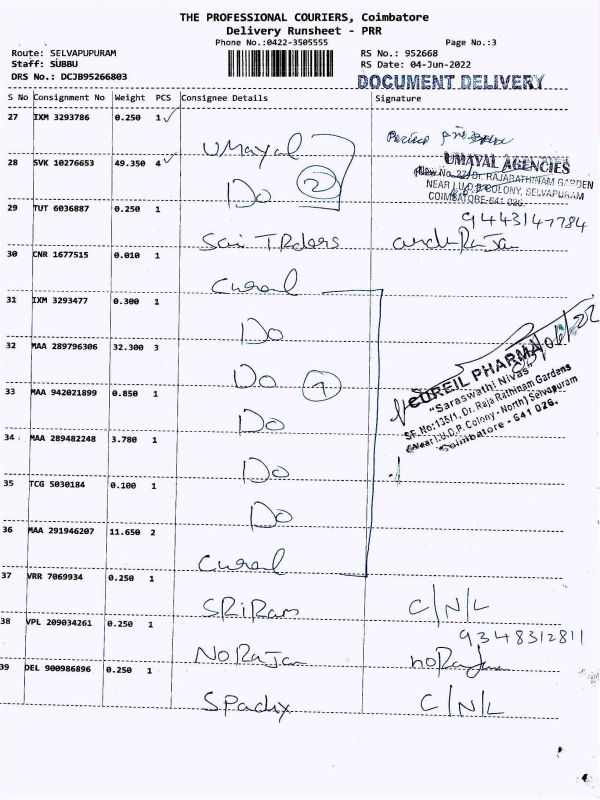 THE PROFESSIONAL COURIERS, Coimbatore
Delivery Runsheet - PRR
Phone No.:0422-3505555 Page No.:3
Route: SELVAPUPURAM RS No.: 952668
Staff: SUBBU RS Date: 04-Jun-2022
DRS No.: DCJB95266803 DOCUMENT DELIVERY
S No Consignment No Weight PCS Consignee Details Signature
27 IXM 3293786 0.250 1 ✓ Umayal
UMAYAL AGENCIES
28 SVK 10276653 49.350 4 ✓ Do 2
New No. 22, Dr. RAJARATHINAM GARDEN
NEAR I.U.D.P. COLONY, SELVAPURAM
COIMBATORE-641 026.
9443147784
29 TUT 6036887 0.250 1 Sai TRders
30 CNR 1677515 0.010 1 Cureil
31 IXM 3293477 0.300 1 Do
32 MAA 289796306 32.300 3 Do 7
CUREIL PHARMA
"Saraswathi Nivas"
SF. No:135/1, Dr. Raja Rathinam Gardens
(Near I.U.D.P. Colony - North) Selvapuram
Coimbatore - 641 026.
33 MAA 942021899 0.850 1 Do
34 MAA 289482248 3.780 1 Do
35 TCG 5030184 0.100 1 Do
36 MAA 291946207 11.650 2 Cureil
37 VRR 7069934 0.250 1 SRiRam C/N/L
9348312811
38 VPL 209034261 0.250 1 NoRajan noRajan
39 DEL 900986896 0.250 1 Spadix C/N/L